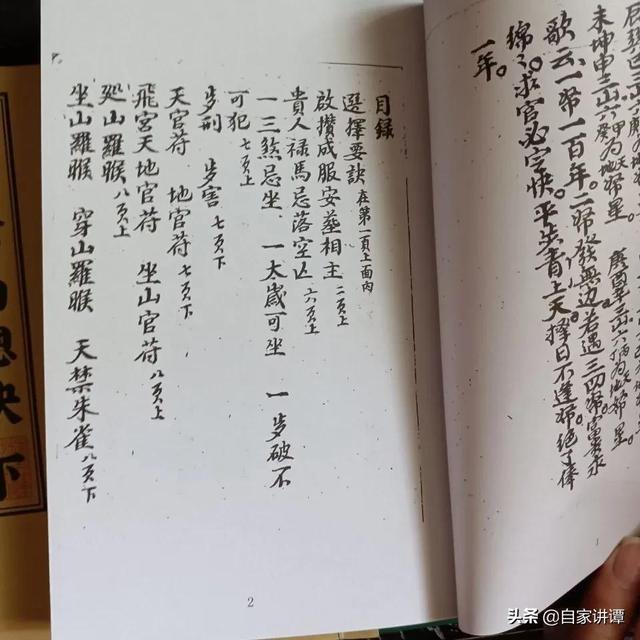 未坤申三山六
歌云、一帝一百年。二帝發無边。若遇三四帝富貴永
綿々。求官必定快。平步青上天擇日不逢帝絕了俸
一年。
1
目録
選擇要訣 在第一頁上面内
啟攢成服安葬相主 二頁上
貴人禄馬忌落空亡 六頁上
一三煞忌坐、一太歲可坐 一岁破不
可犯 七頁上
岁刑 岁害 七頁下
天官符 地官符 七頁下
飛宮天地官符 坐山官符 八頁上
廵山羅睺 八頁上
坐山羅睺 穿山羅睺 天禁朱雀 八頁下
2
下
头条 @自家讲谭